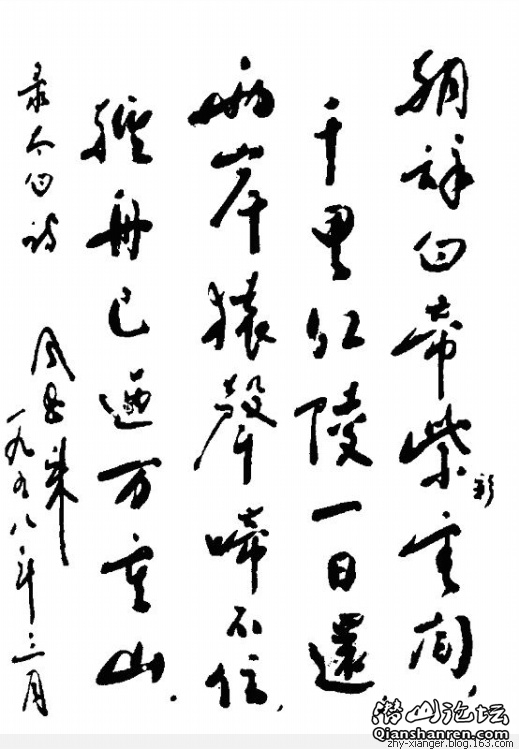 朝辞白帝紫彩雲间，
千里江陵一日還
两岸猿聲啼不住，
轻舟已過万重山．
录太白诗
周恩来
一九五八年三月
潜山论坛
Qianshanren.com
zhy-xianger.blog.163.com